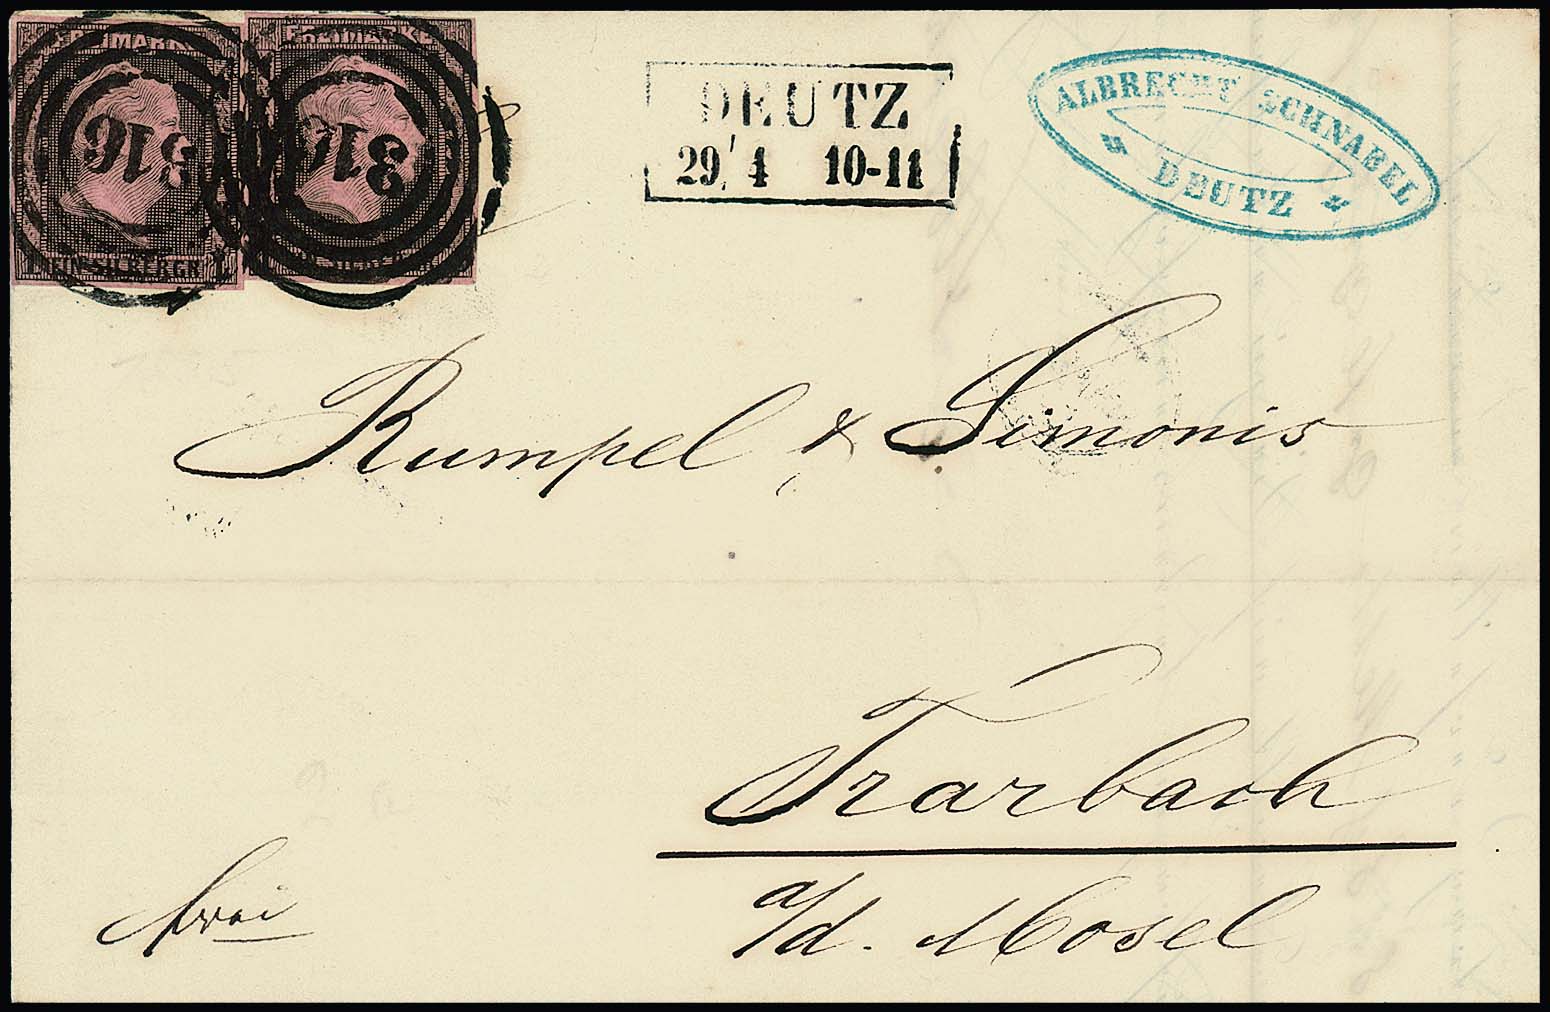 FREIMARKE
FREIMARKE
316
316
EIN SILBERGR
DEUTZ
29/4 10-11
ALBRECHT SCHNABEL
DEUTZ
Rumpel & Simonis
Trarbach
a/d. Mosel
frei